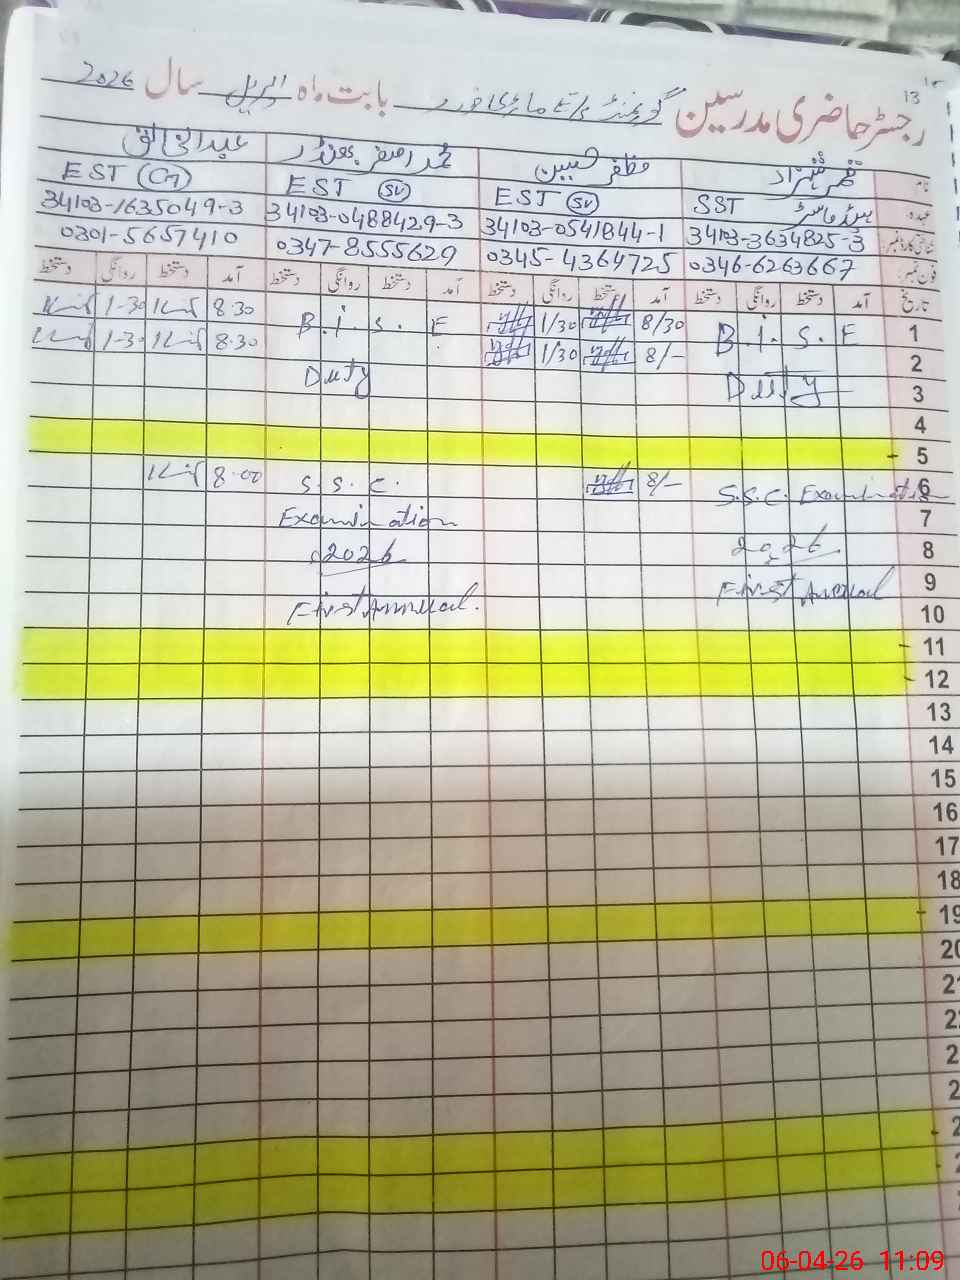 13
رجسٹر حاضری مدرسین گورنمنٹ بابت ماہ اپریل سال 2026
نام مظفر حسین محمد اصغر
عہدہ SST ہیڈ ماسٹر EST (SV) EST (SV) EST
شناختی کارڈ نمبر 34103-3634825-3 34103-0541844-1 34103-0488429-3 34103-1635049-3
فون نمبر: 0346-6263667 0345-4364725 0347-8555629 0301-5657410
تاریخ آمد دستخط روانگی دستخط آمد دستخط روانگی دستخط آمد دستخط روانگی دستخط آمد دستخط روانگی دستخط
1 B.I.S.E 8/30 1/30 B.I.S.E 8.30 1-30
2 8/- 1/30 8.30 1-30
3 Duty Duty
4
5
6 S.S.C. Examination 8/- S.S.C. 8.00
7 Examination
8 2026 2026
9 First Annual
10 First Annual.
11
12
13
14
15
16
17
18
19
20
06-04-26 11:09